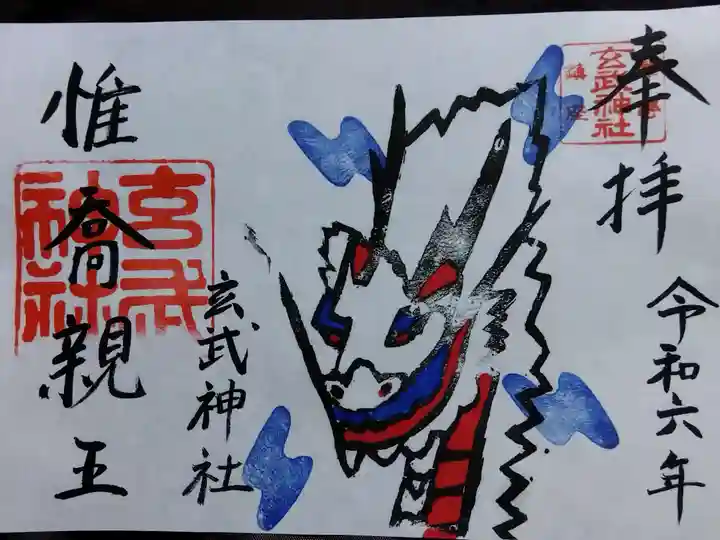 奉拝
玄武神社
鎮座
令和六年
玄武神社
惟喬親王
玄武
神社